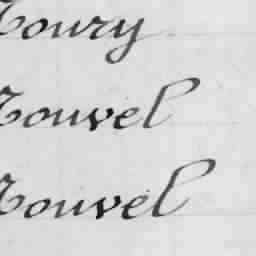 oury
ouvel
ouvel